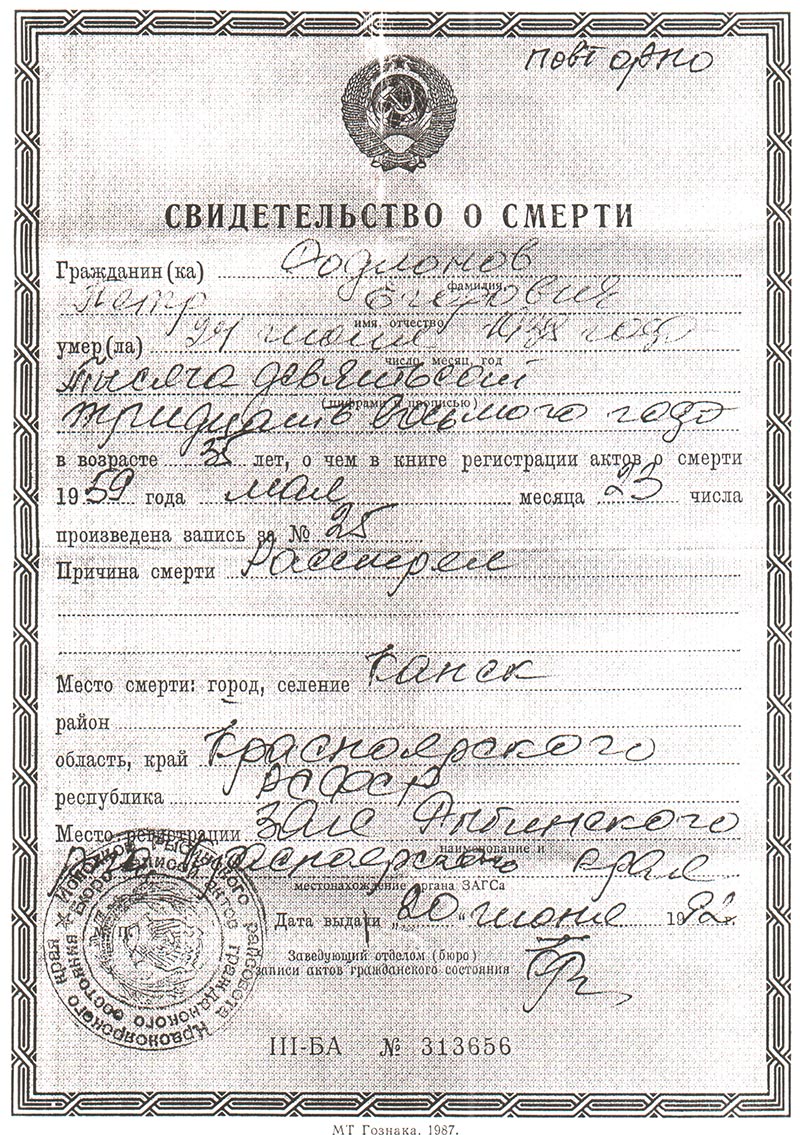 повторно
СВИДЕТЕЛЬСТВО О СМЕРТИ
Гражданин (ка) Родионов
фамилия
Петр Егорович
имя, отчество
умер(ла) июня 1938 года
число, месяц, год
тысяча девятьсот
(цифрами и прописью)
тридцать восьмого года
в возрасте лет, о чем в книге регистрации актов о смерти
1959 года мая месяца 23 числа
произведена запись за № 25
Причина смерти Расстрел
Место смерти: город, селение Канск
район
область, край Красноярского
республика РСФСР
Место регистрации ЗАГС Рыбинского
наименование и
Красноярского края
местонахождение органа ЗАГСа
Дата выдачи „20" июня 1992г.
Заведующий отделом (бюро)
записи актов гражданского состояния
III-БА № 313656
МТ Гознака. 1987.